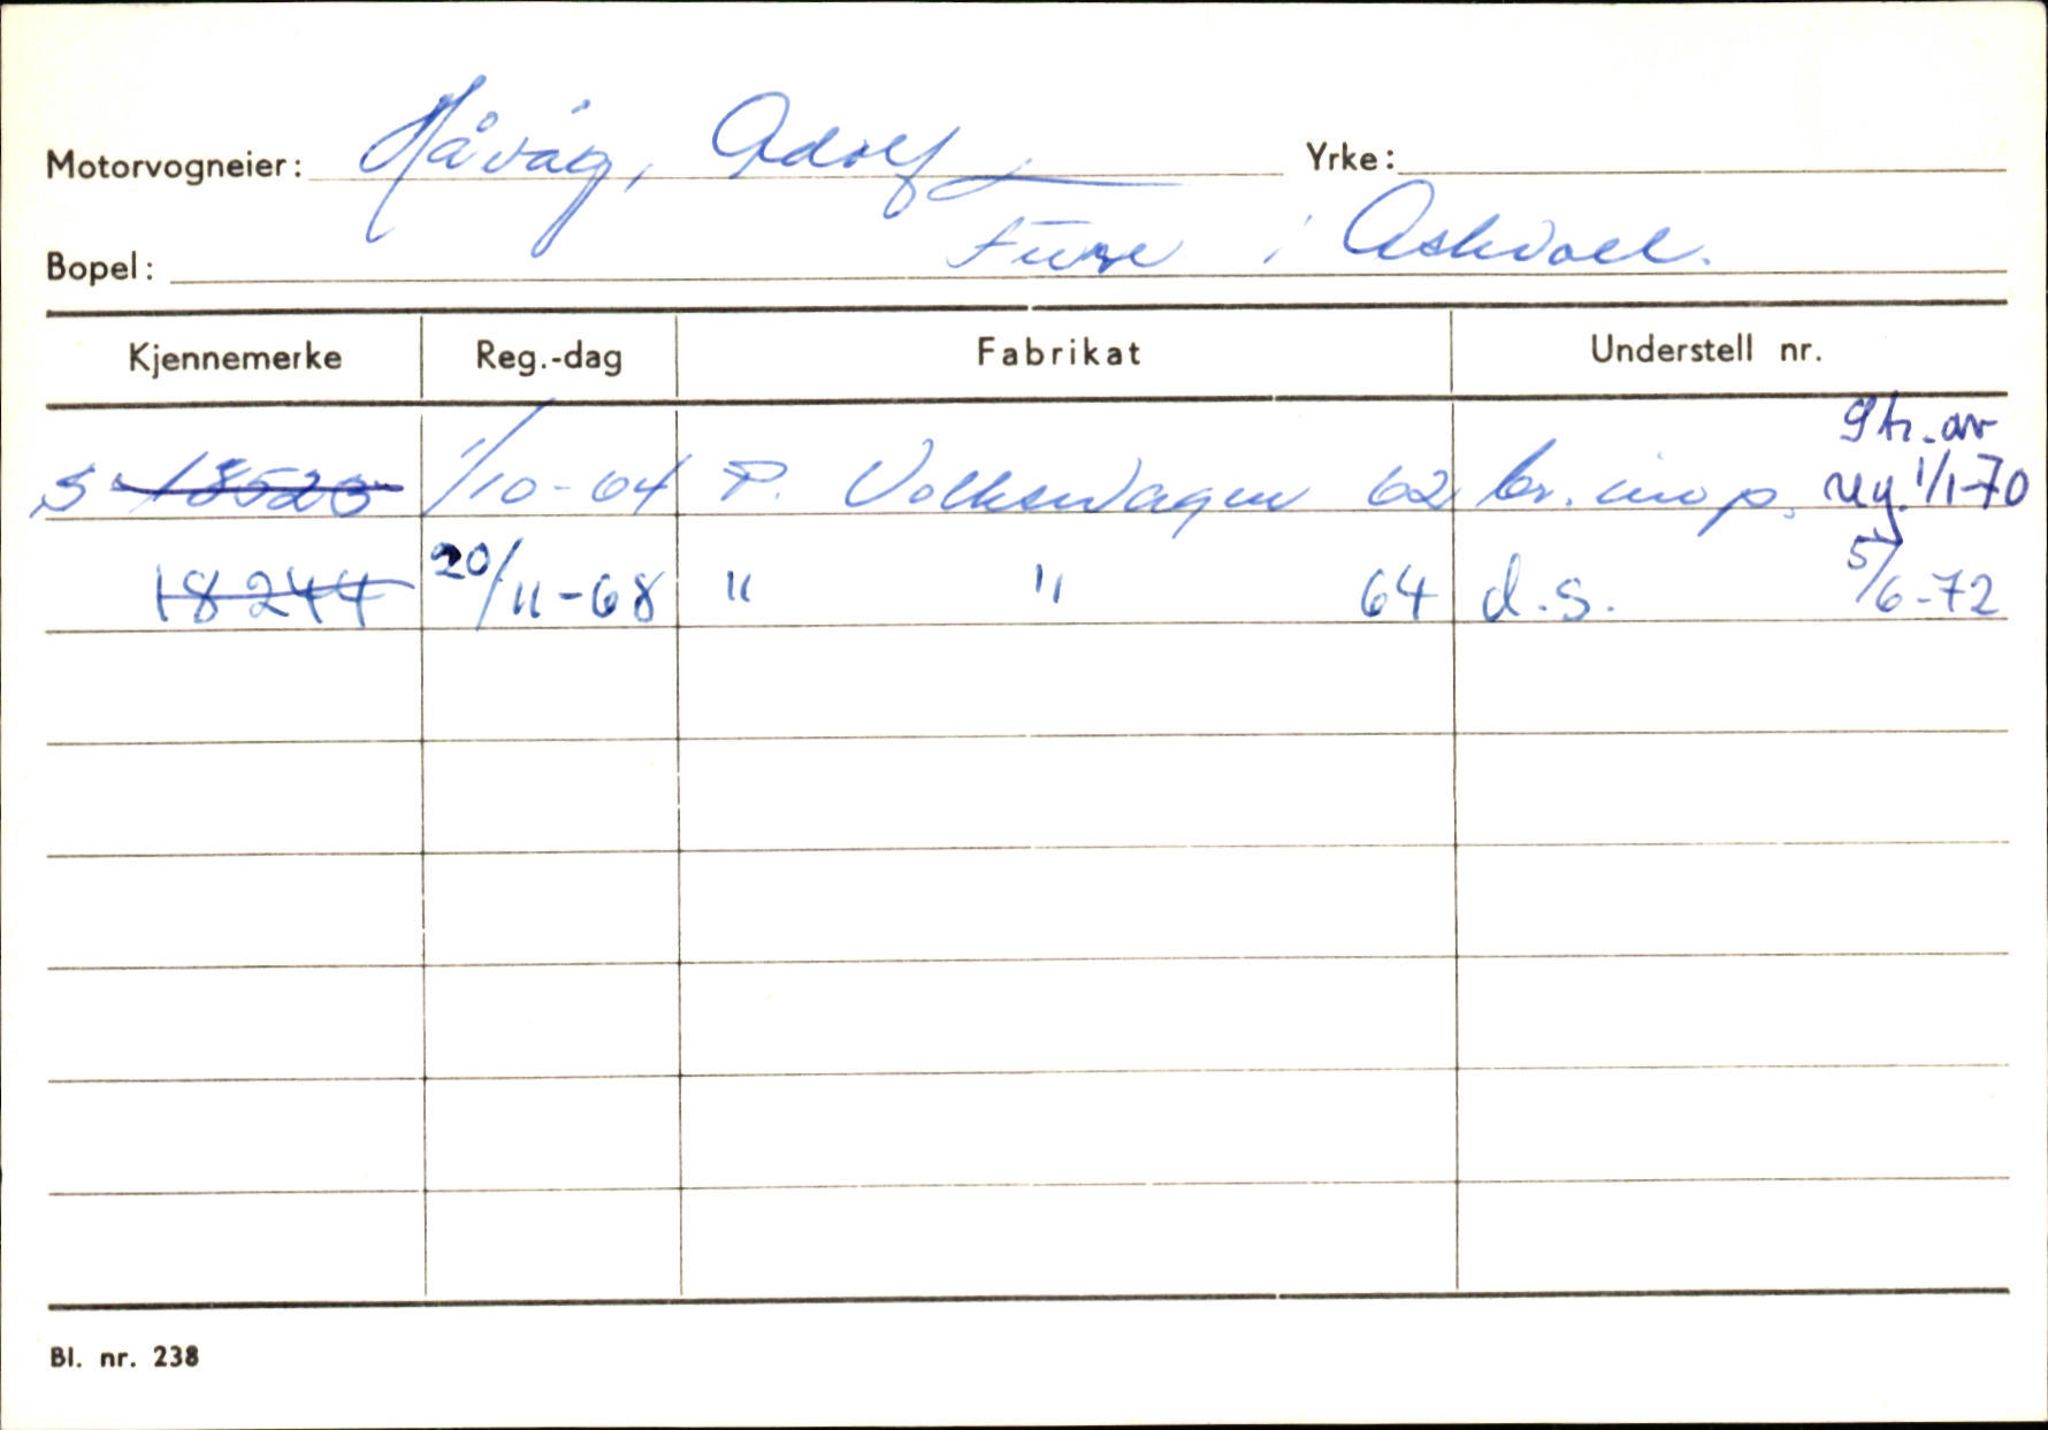 Motorvogneier: Håvåg, Adolf Yrke:
Bopel: Fure i Askvoll.
Kjennemerke Reg.-dag Fabrikat Understell nr.
S-18523 1/10-64 P. Volkswagen 62 br. imp. Str. av
reg. 1/1-70
18244 20/11-68 " " 64 d.s. 5/6-72
Bl. nr. 238